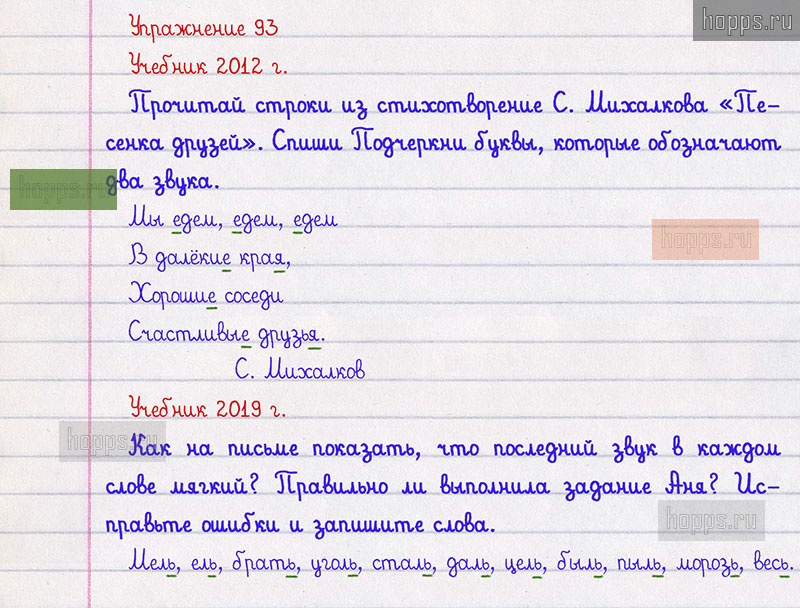 hopps.ru
Упражнение 93
Учебник 2012 г.
Прочитай строки из стихотворение С. Михалкова «Пе-
сенка друзей». Спиши Подчеркни буквы, которые обозначают
два звука.
hopps.ru
Мы едем, едем, едем
hopps.ru
В далёкие края,
Хорошие соседи
Счастливые друзья.
С. Михалков
Учебник 2019 г.
hopps.ru
Как на письме показать, что последний звук в каждом
слове мягкий? Правильно ли выполнила задание Аня? Ис-
правьте ошибки и запишите слова.
hopps.ru
Мель, ель, брать, уголь, сталь, даль, цель, быль, пыль, морозь, весь.